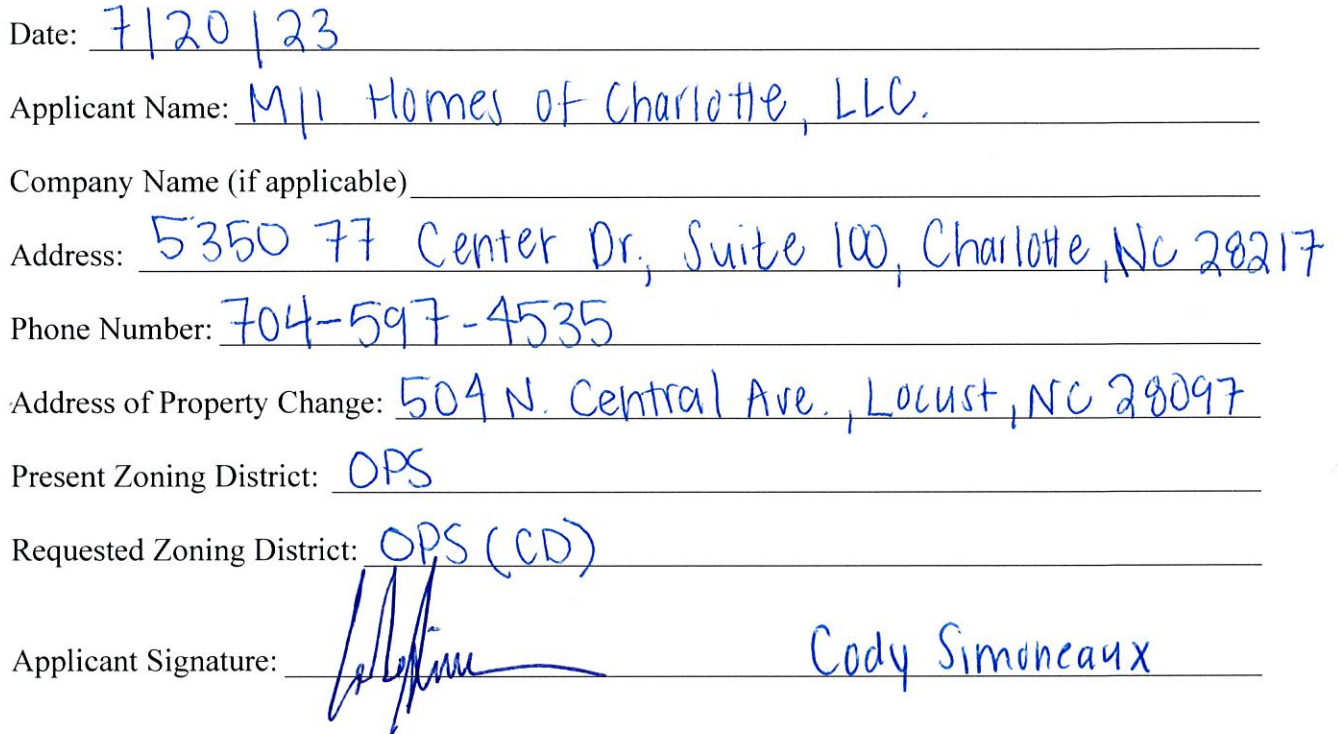 Date: 7/20/23
Applicant Name: M/I Homes of Charlotte, LLC.
Company Name (if applicable)
Address: 5350 77 Center Dr., Suite 100, Charlotte, NC 28217
Phone Number: 704-597-4535
Address of Property Change: 504 N. Central Ave., Locust, NC 28097
Present Zoning District: OPS
Requested Zoning District: OPS (CD)
Applicant Signature: Cody Simoneaux